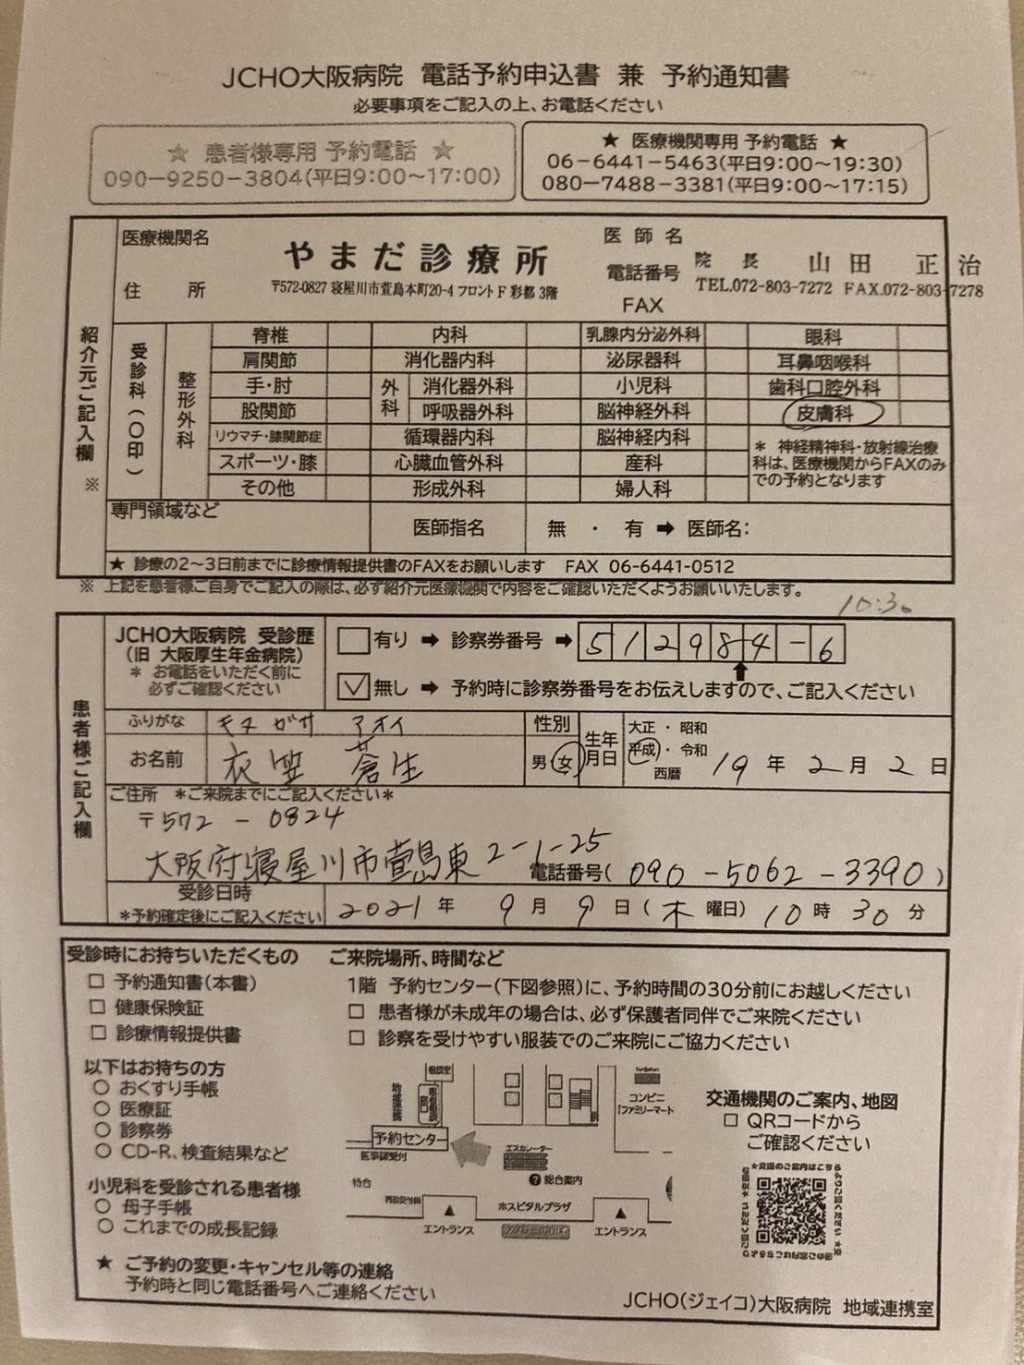 JCHO大阪病院 電話予約申込書 兼 予約通知書
必要事項をご記入の上、お電話ください
★ 患者様専用 予約電話 ★
090-9250-3804(平日9:00～17:00)
★ 医療機関専用 予約電話 ★
06-6441-5463(平日9:00～19:30)
080-7488-3381(平日9:00～17:15)
紹介元ご記入欄 ※
医療機関名 やまだ診療所
住所 〒572-0827 寝屋川市萱島本町20-4 フロントF 彩都 3階
医師名 院長 山田 正治
電話番号 TEL.072-803-7272 FAX.072-803-7278
FAX
受診科(○印)
整形外科
脊椎 内科 乳腺内分泌外科 眼科
肩関節 消化器内科 泌尿器科 耳鼻咽喉科
手・肘 外科 消化器外科 小児科 歯科口腔外科
股関節 呼吸器外科 脳神経外科 皮膚科
リウマチ・膝関節症 循環器内科 脳神経内科
スポーツ・膝 心臓血管外科 産科
その他 形成外科 婦人科
＊ 神経精神科・放射線治療
科は、医療機関からFAXのみ
での予約となります
専門領域など 医師指名 無 ・ 有 ➡ 医師名:
★ 診療の2～3日前までに診療情報提供書のFAXをお願いします FAX 06-6441-0512
※ 上記を患者様ご自身でご記入の際は、必ず紹介元医療機関で内容をご確認いただくようお願いいたします。
10:30
患者様ご記入欄
JCHO大阪病院 受診歴
(旧 大阪厚生年金病院)
＊ お電話をいただく前に
必ずご確認ください
有り ➡ 診察券番号 ➡ 512984-6
無し ➡ 予約時に診察券番号をお伝えしますので、ご記入ください
ふりがな キヌガサ アオイ
お名前 衣笠 蒼生
性別 男 女
生年月日 大正・昭和
平成・令和
西暦 19年 2月 2日
ご住所 ＊ご来院までにご記入ください＊
〒572-0824
大阪府寝屋川市萱島東2-1-25
電話番号(090-5062-3390)
受診日時
＊予約確定後にご記入ください
2021年 9月 9日(木曜日) 10時 30分
受診時にお持ちいただくもの
□ 予約通知書(本書)
□ 健康保険証
□ 診療情報提供書
以下はお持ちの方
○ おくすり手帳
○ 医療証
○ 診察券
○ CD-R、検査結果など
小児科を受診される患者様
○ 母子手帳
○ これまでの成長記録
★ ご予約の変更・キャンセル等の連絡
予約時と同じ電話番号へご連絡ください
ご来院場所、時間など
1階 予約センター(下図参照)に、予約時間の30分前にお越しください
□ 患者様が未成年の場合は、必ず保護者同伴でご来院ください
□ 診察を受けやすい服装でのご来院にご協力ください
地域連携
予約センター
エスカレーター
? 総合案内
ホスピタルプラザ
エントランス
エントランス
FamilyMart
コンビニ
「ファミリーマート
交通機関のご案内、地図
□ QRコードから
ご確認ください
★交通のご案内はこちら
JCHO(ジェイコ)大阪病院 地域連携室